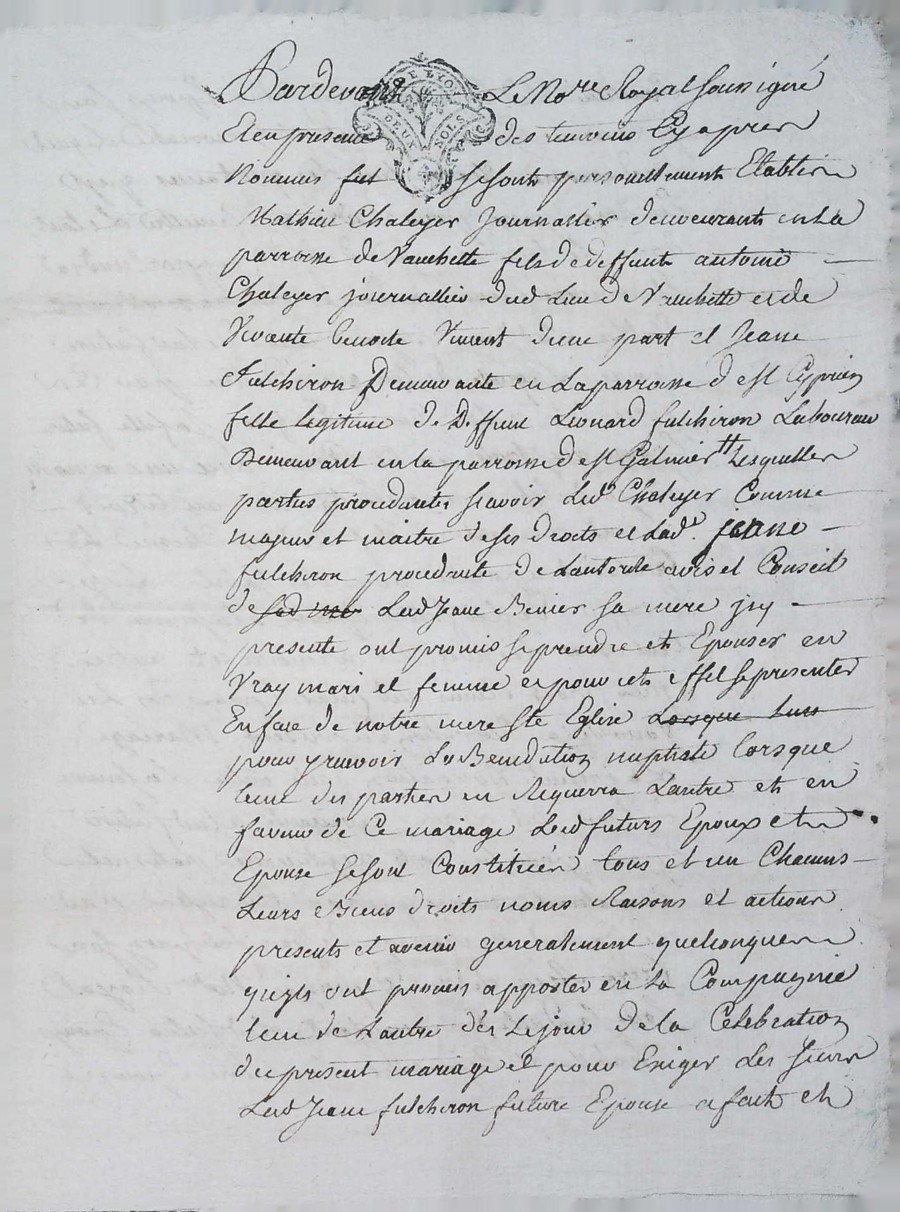 Pardevant Le No.re Royal soussigné
DE LYON
DEUX SOLS
Et en presence des temoins Cy apres
Nommes fut se sont personellement Etablis
Mathieu Chaleyer Journallier demeurant en La
parroisse de Vauchette fils de deffunt antoine
Chaleyer journallier dud Lieu de Vauchette et de
Vivante benoite Vincent d'une part et Jeane
Fulchiron Demeurante en La parroisse de st Cyprien
fille legitime de Deffunt Leonard fulchiron Laboureur
Demeurant en la parroisse de st Galmier tt Lesquelles
parties procedantes scavoir Led. Chaleyer Comme
majeur et maitre de ses droits et Lad. jeane
fulchiron procedante de Lautorité avis et Conseil
de Lad Jeane Benier sa mere jcy
presente ont promis se prendre et Epouser en
Vray mari et femme et pour cet effet se presenter
En face de notre mere ste Eglise Lorsque Lun
pour y recevoir La Benediction nuptiale lorsque
lune des parties en Requerra Lautre et en
faveur de Ce mariage Lesd futurs Epoux et
Epouse se sont Constitués tous et un Chacuns
Leurs Biens droits noms Raisons et actions
presents et avenir generalement quelconques
qu'ils ont promis apporter en La Compagnie
lun de Lautre dès Le jour de la Celebration
du present mariage et pour Exiger Les siens
Lad Jeane fulchiron future Epouse a fait et